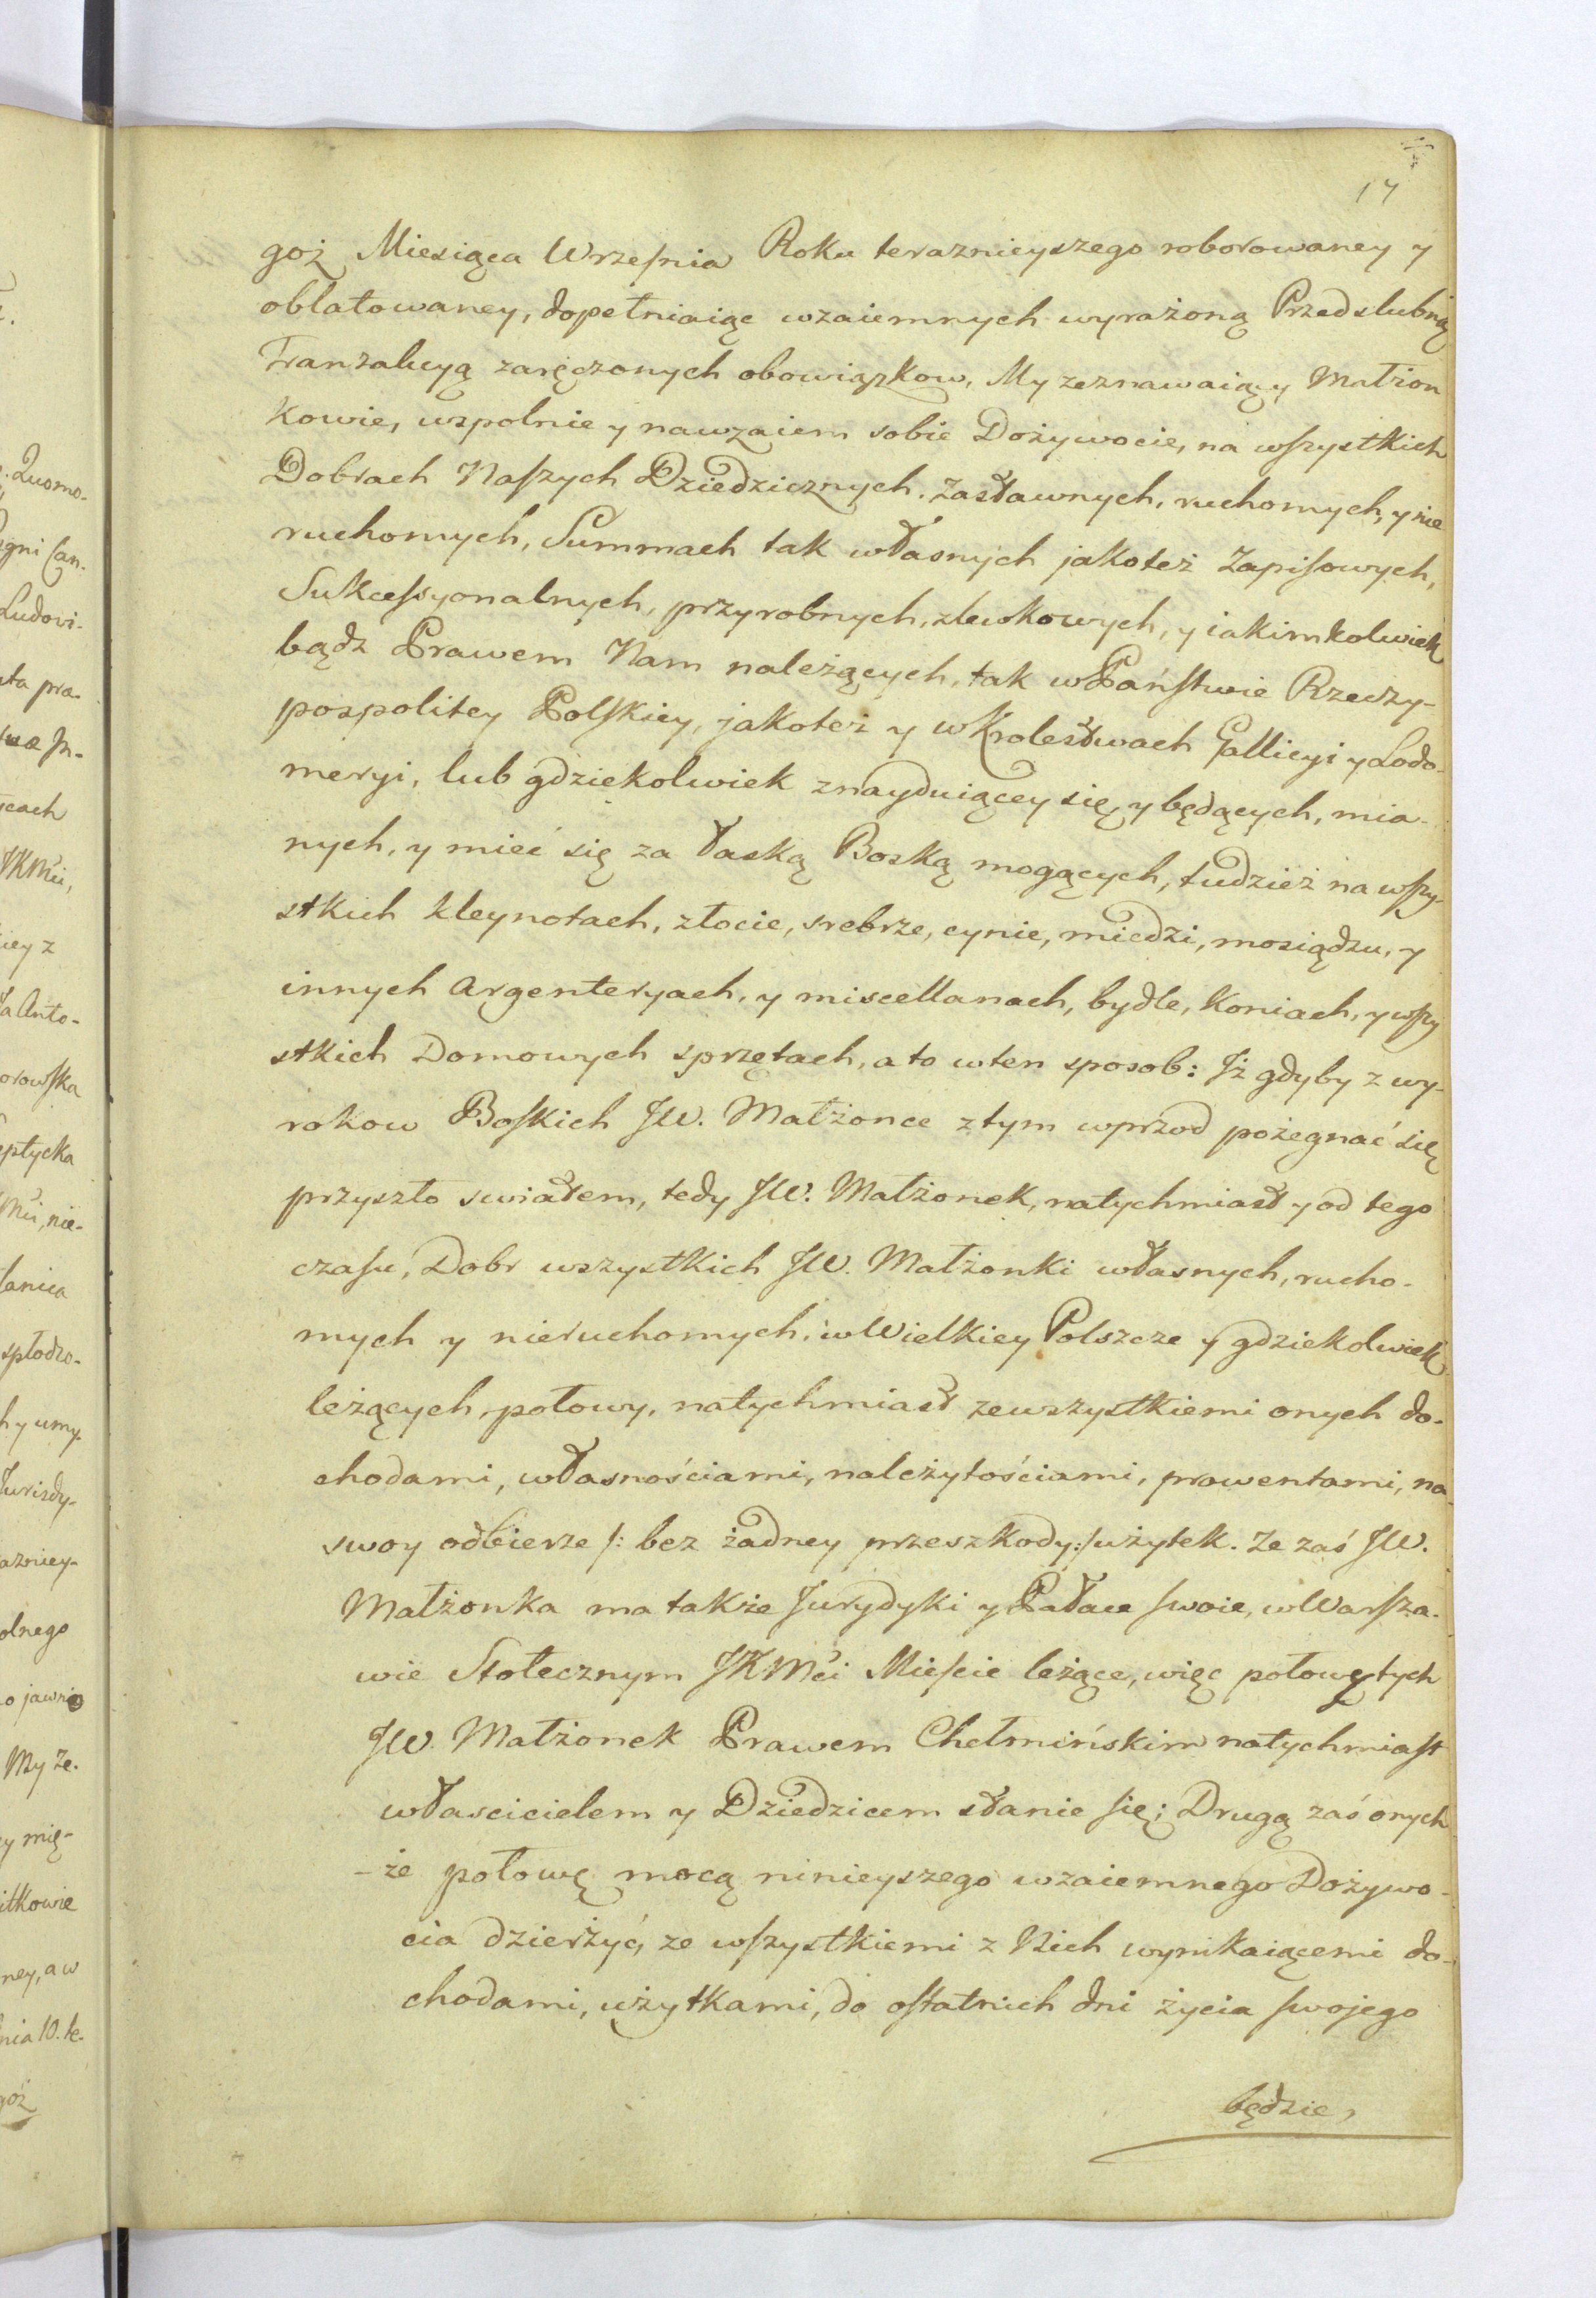 17
goż Miesiąca Wrzesnia Roku teraznieyszego roborowaney y
oblatowaney, dopełniaiąc wzaiemnych wyrażoną Przedslubną
Tranzakcyą zaręczonych obowiązkow, My zeznawaiący Małżon
kowie, wspolnie y nawzaiem sobie Dożywocie, na wszystkich
Dobrach Naszych Dziedzicznych. Zastawnych, ruchomych, y nie
ruchomych, Summach tak własnych jakoteż Zapisowych,
Sukcessyonalnych, przyrobnych, zlewkowych, y iakimkolwiek
bądz Prawem Nam należących, tak w Państwie Rzeczy-
pospolitey Polskiey, jakoteż y w Krolestwach Gallicyi y Lodo-
meryi, lub gdziekolwiek znayduiącey się, y będących, mia-
nych, y mieć się za łaską Boską mogących, tudzież na wszy-
stkich kleynotach, złocie, srebrze, cynie, miedzi, mosiądzu, y
innych Argenteryach, y miscellanach, bydle, koniach, y wszy
stkich Domowych sprzętach, a to w ten sposob: Jż gdyby z wy-
rokow Boskich JW. Małżonce z tym wprzod pożegnać się
przyszło swiatem, tedy JW. Małżonek, natychmiast y od tego
czasu, Dobr wszystkich JW. Małżonki własnych, rucho-
mych y nieruchomych, w Wielkiey Polszcze y gdziekolwiek
leżących, połowy, natychmiast ze wszystkiemi onych do-
chodami, własnościami, należytościami, prowentami, na
swoy odbierze /: bez żadney przeszkody :/ użytek. Ze zaś JW.
Małżonka ma także Jurydyki y Pałace swoie, w Warsza-
wie Stołecznym JKMći Mieście leżące, więc połowę tych
JW. Małżonek Prawem Chełmińskim natychmiast
włascicielem y Dziedzicem stanie się; Drugą zaś onych
-że połowę mocą ninieyszego wzaiemnego Dożywo-
cia dzierżyć, ze wszystkiemi z Nich wynikaiącemi do-
chodami, użytkami, do ostatnich dni życia swojego
będzie,